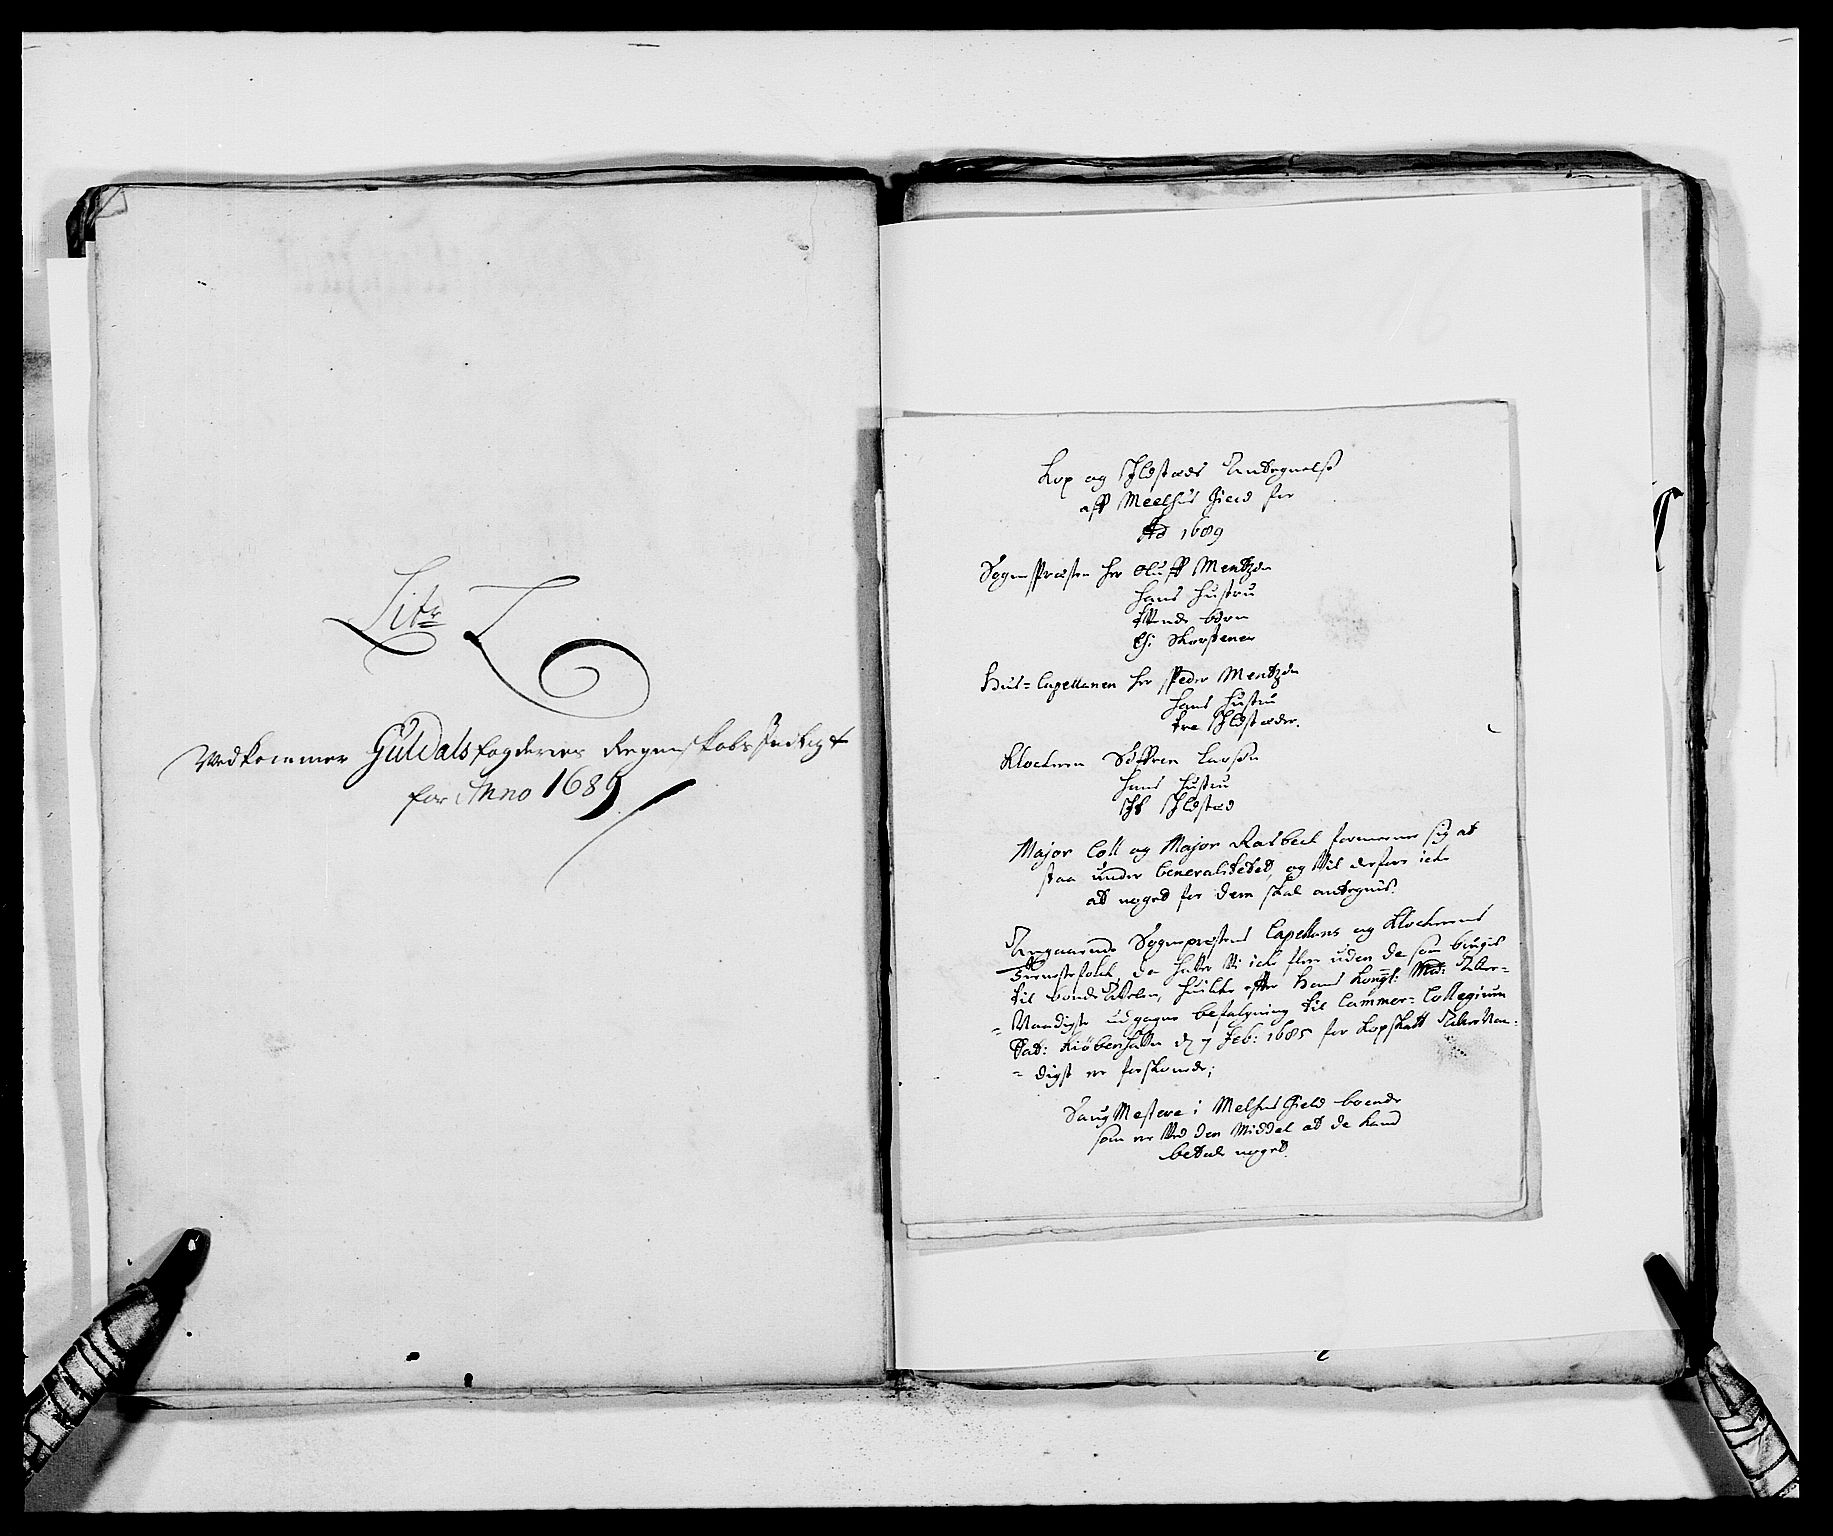 Litr Z
Vedkommer Guldals fogderies Regenskabs
for Anno 1689
Kop og Ildsteds Antegnelse
aff Meelhus Gield for
Ao 1689
Sogne Præsten her Oluff Mentzen
hans hustru
børn
Skorstener
Huus-Capellanen her Peder Mentzen
hans hustru
tre Ildsteder.
Klocheren Søffren Larsen
hans hustru
Ildsted
Major Coll og Major Rasbech formeener sig at
staa under Generalitetet, og Vil derfore iche
at noget for dem skal antegnis.
Angaaende Sognepræstens Capellans og Klocherens
tienistefolch da haffr Vi iche flere uden de som brugis
til bonde Aulen, huilche efter Hans Kongl: May: Aller-
-Naadigste udgagne befalgning til Cammer-Collegium
Dat: Kiøbenhaffn d 7 Feb: 1685 for Kopskatt AllerNaa-
-digst er forskonede;
Saug Mestere i Melhus Gield boende
som er Ved den Middel at de kand
betale noget.